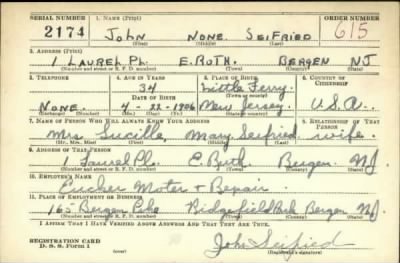 SERIAL NUMBER 1. NAME (Print) ORDER NUMBER
2174 JOHN NONE. SEIFRIED 615
(First) (Middle) (Last)
2. ADDRESS (Print)
1 LAUREL PL. E. RUTH. BERGEN NJ
(Number and street or R. F. D. number) (Town) (County) (State)
3. TELEPHONE 4. AGE IN YEARS 5. PLACE OF BIRTH 6. COUNTRY OF CITIZENSHIP
34 Little Ferry
DATE OF BIRTH
None. 4-22-1906 New Jersey. U.S.A.
(Exchange) (Number) (Mo.) (Day) (Yr.) (State or country)
7. NAME OF PERSON WHO WILL ALWAYS KNOW YOUR ADDRESS 8. RELATIONSHIP OF THAT PERSON
Mrs. Lucille, Mary Seifried wife.
(Mr., Mrs., Miss) (First) (Middle) (Last)
9. ADDRESS OF THAT PERSON
1 Laurel Pl. E. Ruth. Bergen. NJ
(Number and street or R. F. D. number) (Town) (County) (State)
10. EMPLOYER'S NAME
Motor + Repair.
11. PLACE OF EMPLOYMENT OR BUSINESS
165 Bergen Pike Ridgefield Park Bergen NJ.
(Number and street or R. F. D. number) (Town) (County) (State)
I AFFIRM THAT I HAVE VERIFIED ABOVE ANSWERS AND THAT THEY ARE TRUE.
REGISTRATION CARD
D. S. S. Form 1 John Seifried
(Registrant's signature)